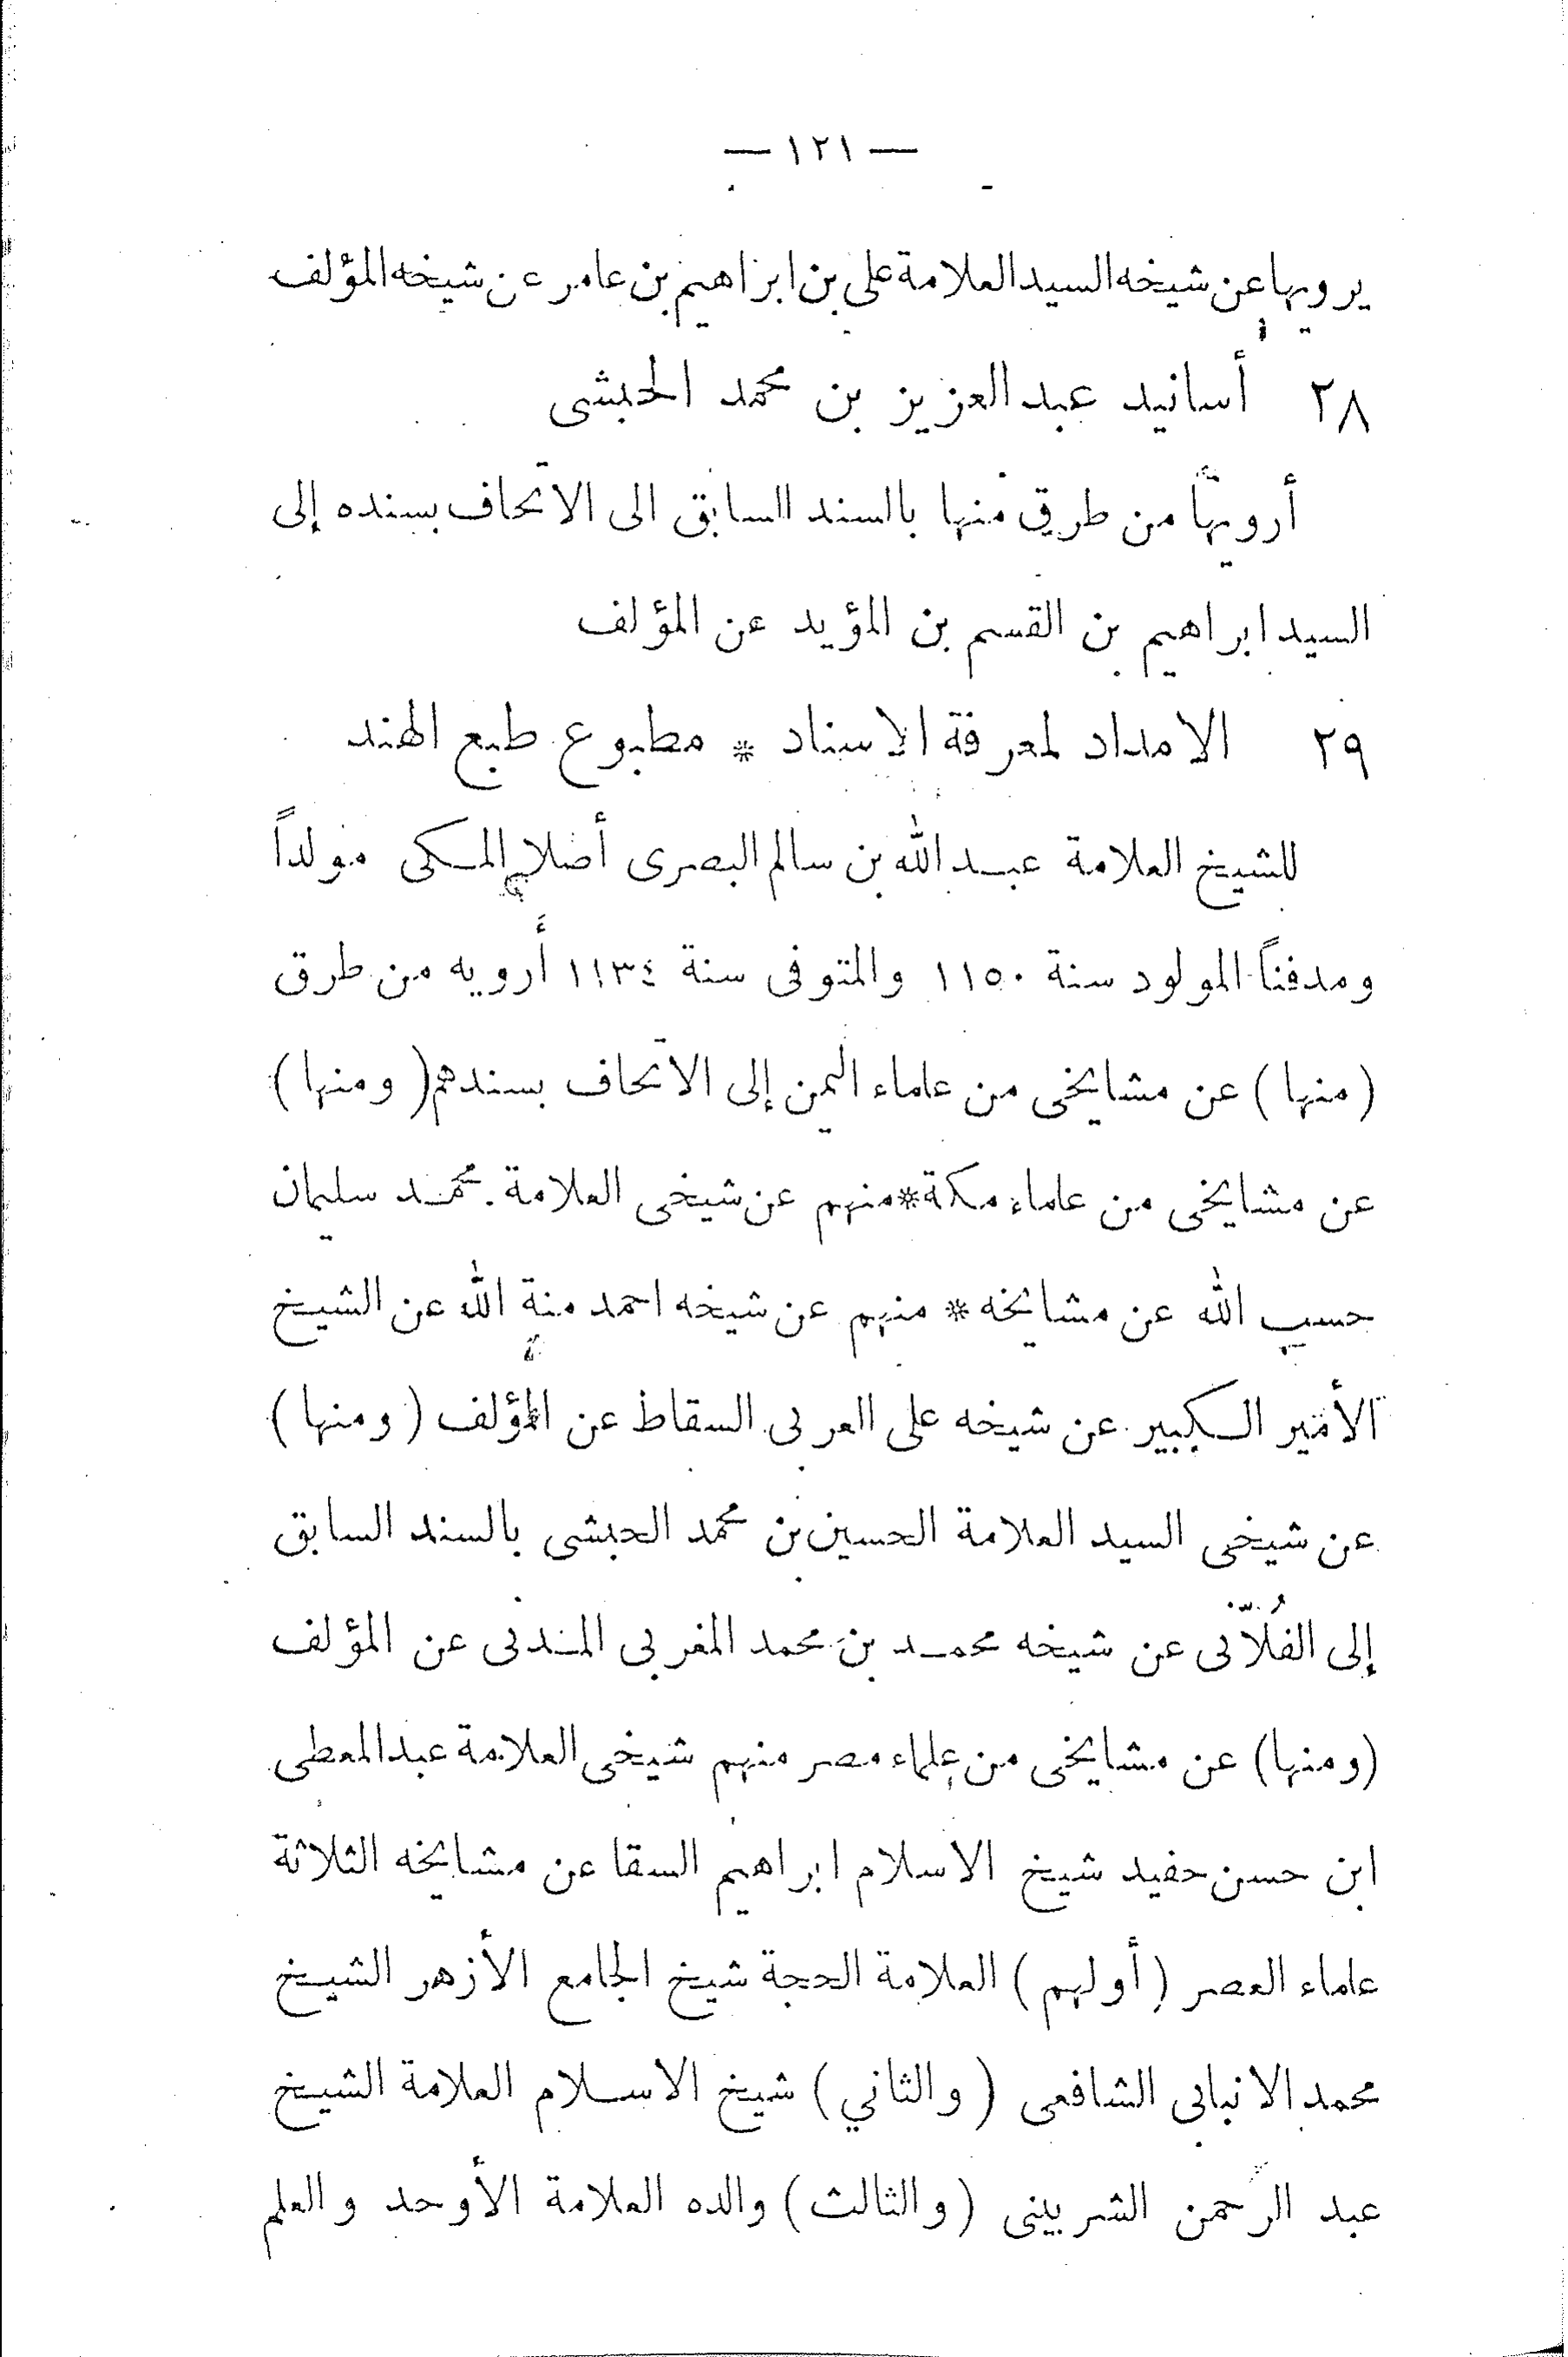 — ١٢١ —
يرويها عن شيخه السيد العلامة على بن ابراهيم بن عامر عن شيخه المؤلف
٢٨ أسانيد عبد العزيز بن محمد الحبشى
أرويها من طرق منها بالسند السابق الى الاتحاف بسنده إلى
السيد ابراهيم بن القسم بن المؤيد عن المؤلف
٢٩ الامداد لمعرفة الاسناد * مطبوع طبع الهند
للشيخ العلامة عبد الله بن سالم البصرى أصلا المكى مولداً
ومدفناً المولود سنة ١١٥٠ والمتوفى سنة ١١٣٤ أرويه من طرق
(منها) عن مشايخى من علماء اليمن إلى الاتحاف بسندهم (ومنها)
عن مشايخى من علماء مكة * منهم عن شيخى العلامة محمد سليمان
حسب الله عن مشايخه * منهم عن شيخه احمد منة الله عن الشيخ
الأمير الكبير عن شيخه على العربى السقاط عن المؤلف (ومنها)
عن شيخى السيد العلامة الحسين بن محمد الحبشى بالسند السابق
إلى الفُلاّنى عن شيخه محمد بن محمد المغربى المدنى عن المؤلف
(ومنها) عن مشايخى من علماء مصر منهم شيخى العلامة عبد المعطى
ابن حسن حفيد شيخ الاسلام ابراهيم السقا عن مشايخه الثلاثة
علماء العصر (أولهم) العلامة الحجة شيخ الجامع الأزهر الشيخ
محمد الانبابى الشافعى (والثاني) شيخ الاسلام العلامة الشيخ
عبد الرحمن الشربينى (والثالث) والده العلامة الأوحد والعلم